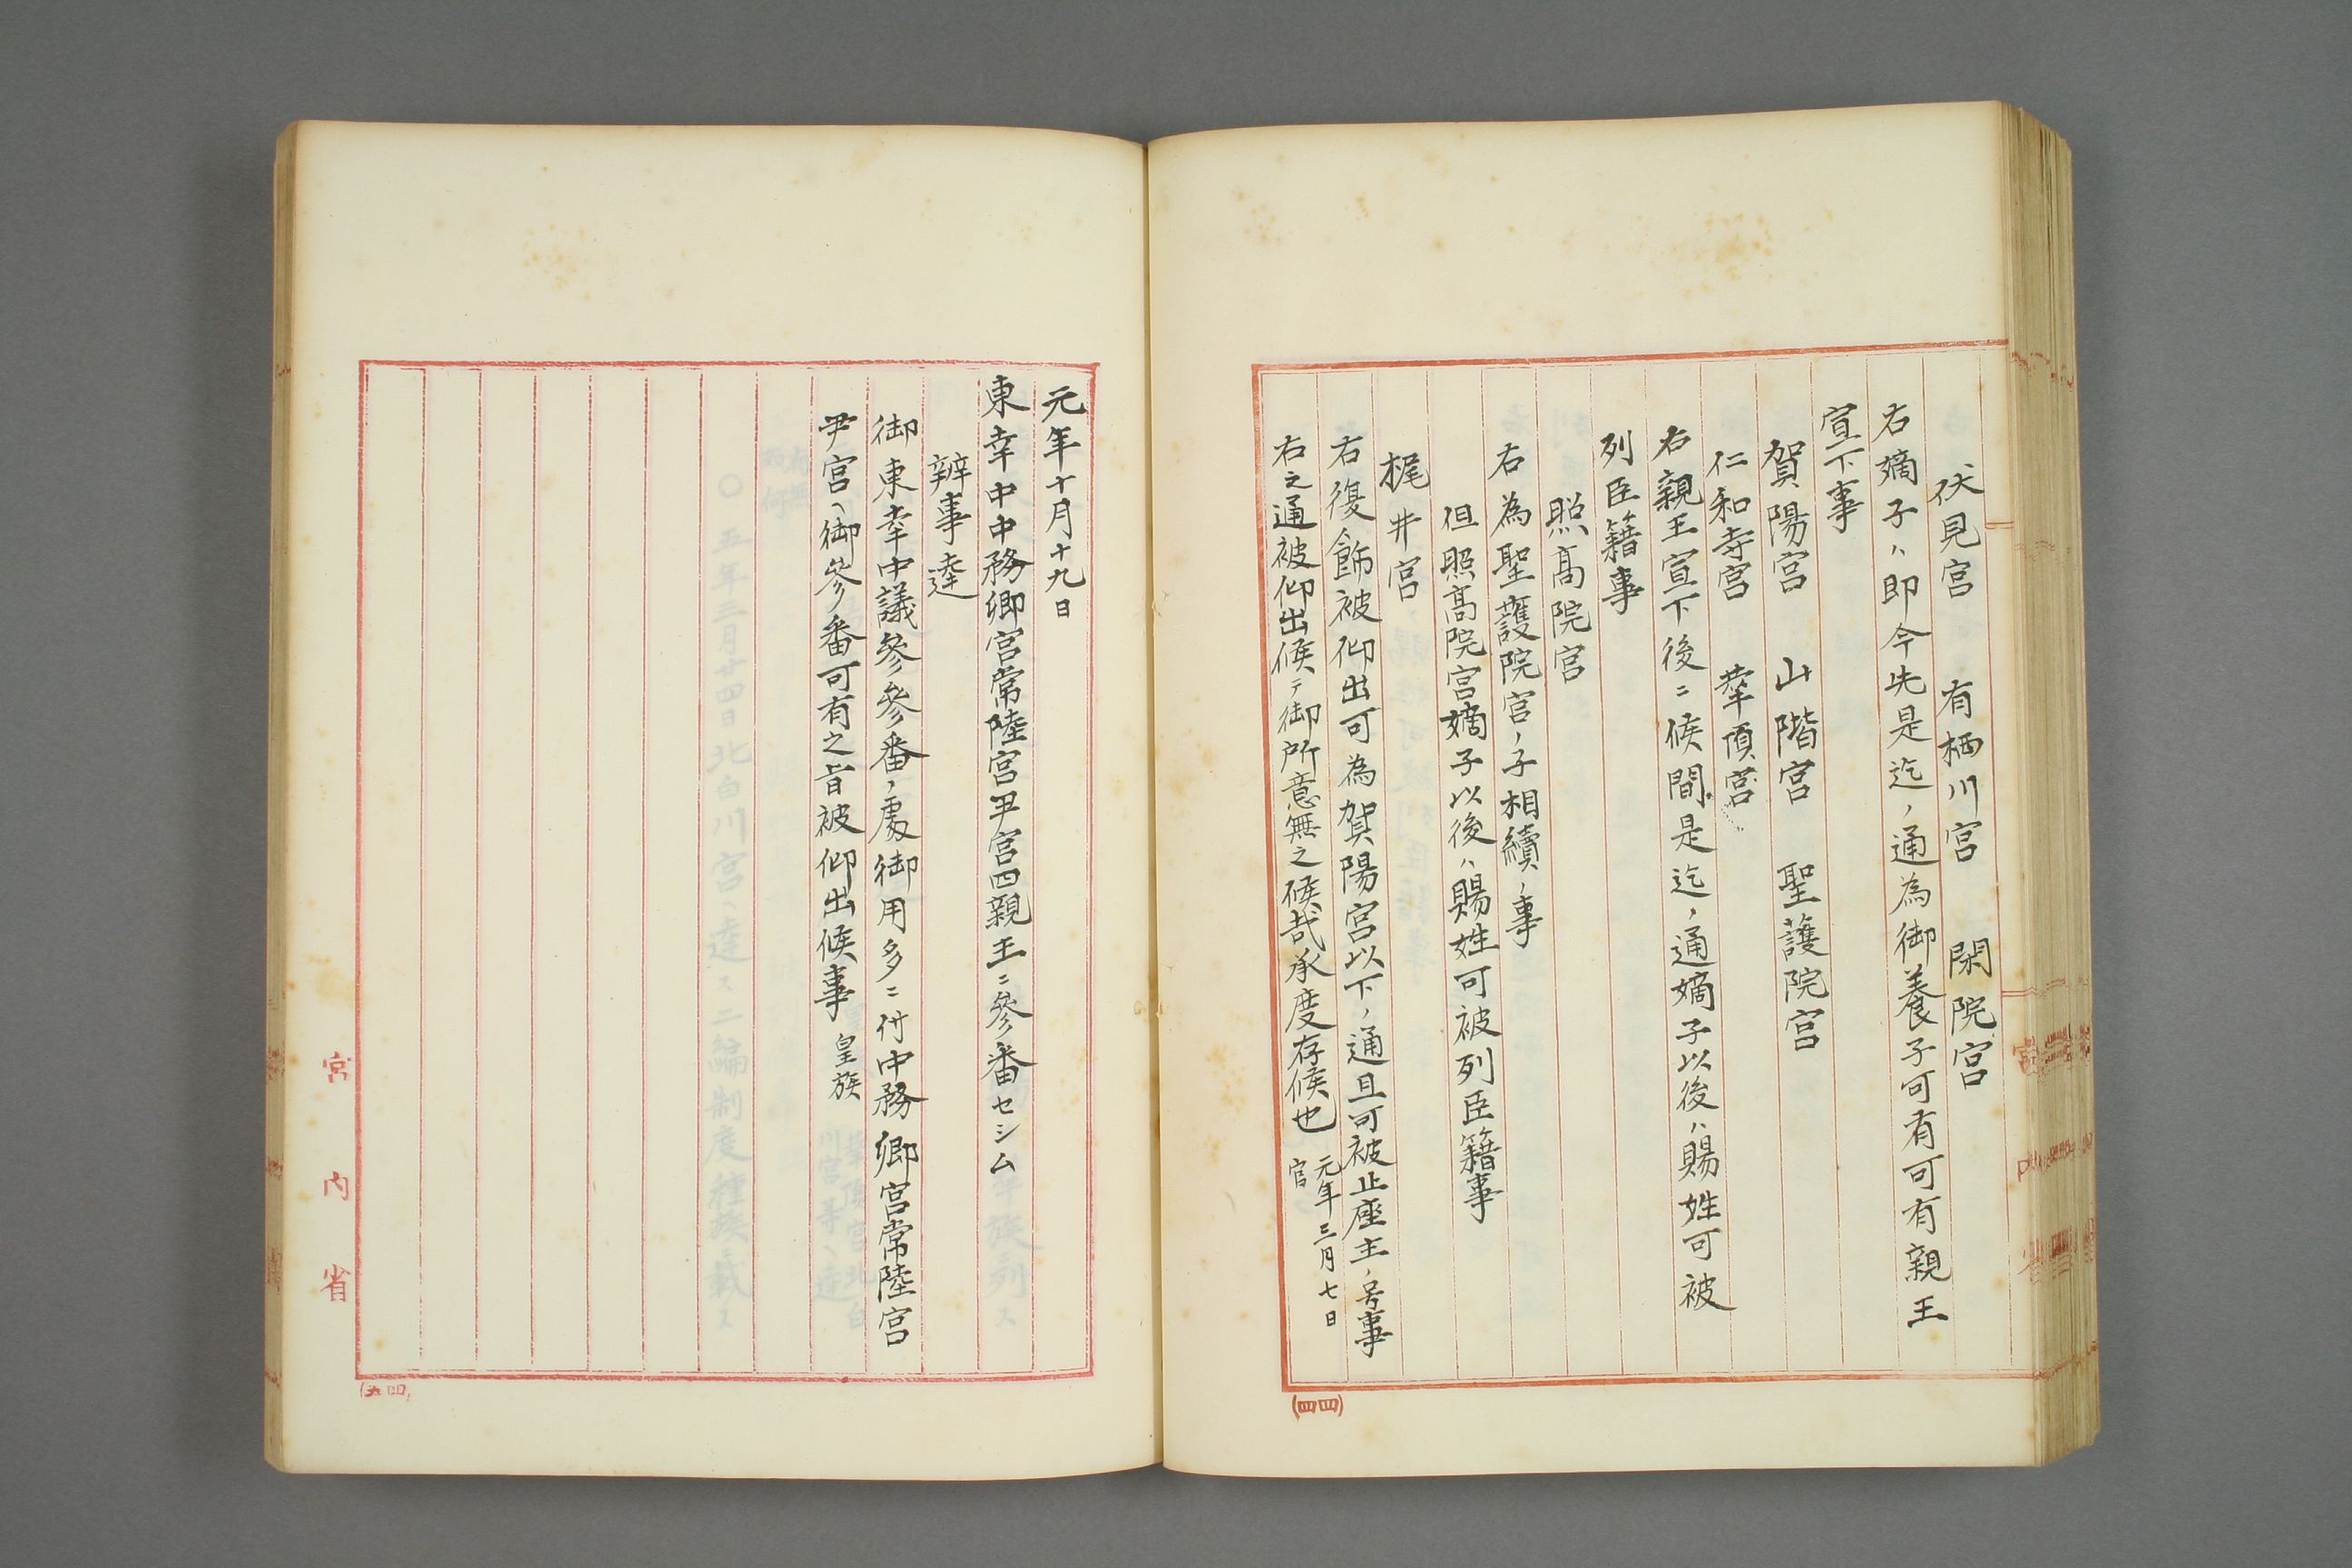 伏見宮　有栖川宮　閑院宮
右嫡子ハ即今先是迄ノ通為御養子可有可有親王
宣下事
賀陽宮　山階宮　聖護院宮
仁和寺宮　華頂宮
右親王宣下後ニ候間是迄ノ通嫡子以後ハ賜姓可被
列臣籍事
照高院宮
右為聖護院宮ノ子相續ノ事
但照高院宮嫡子以後ハ賜姓可被列臣籍事
梶井宮
右復飾被仰出可為賀陽宮以下ノ通且可被止座主ノ号事
右之通被仰出候テ御所意無之候哉承度存候也　元年三月七日
官
(四四)
元年十月十九日
東幸中中務卿宮常陸宮尹宮四親王ニ參番セシム
辨事達
御東幸中議參參番ノ處御用多ニ付中務卿宮常陸宮
尹宮ヘ御參番可有之旨被仰出候事　皇族
宮内省
(四五)